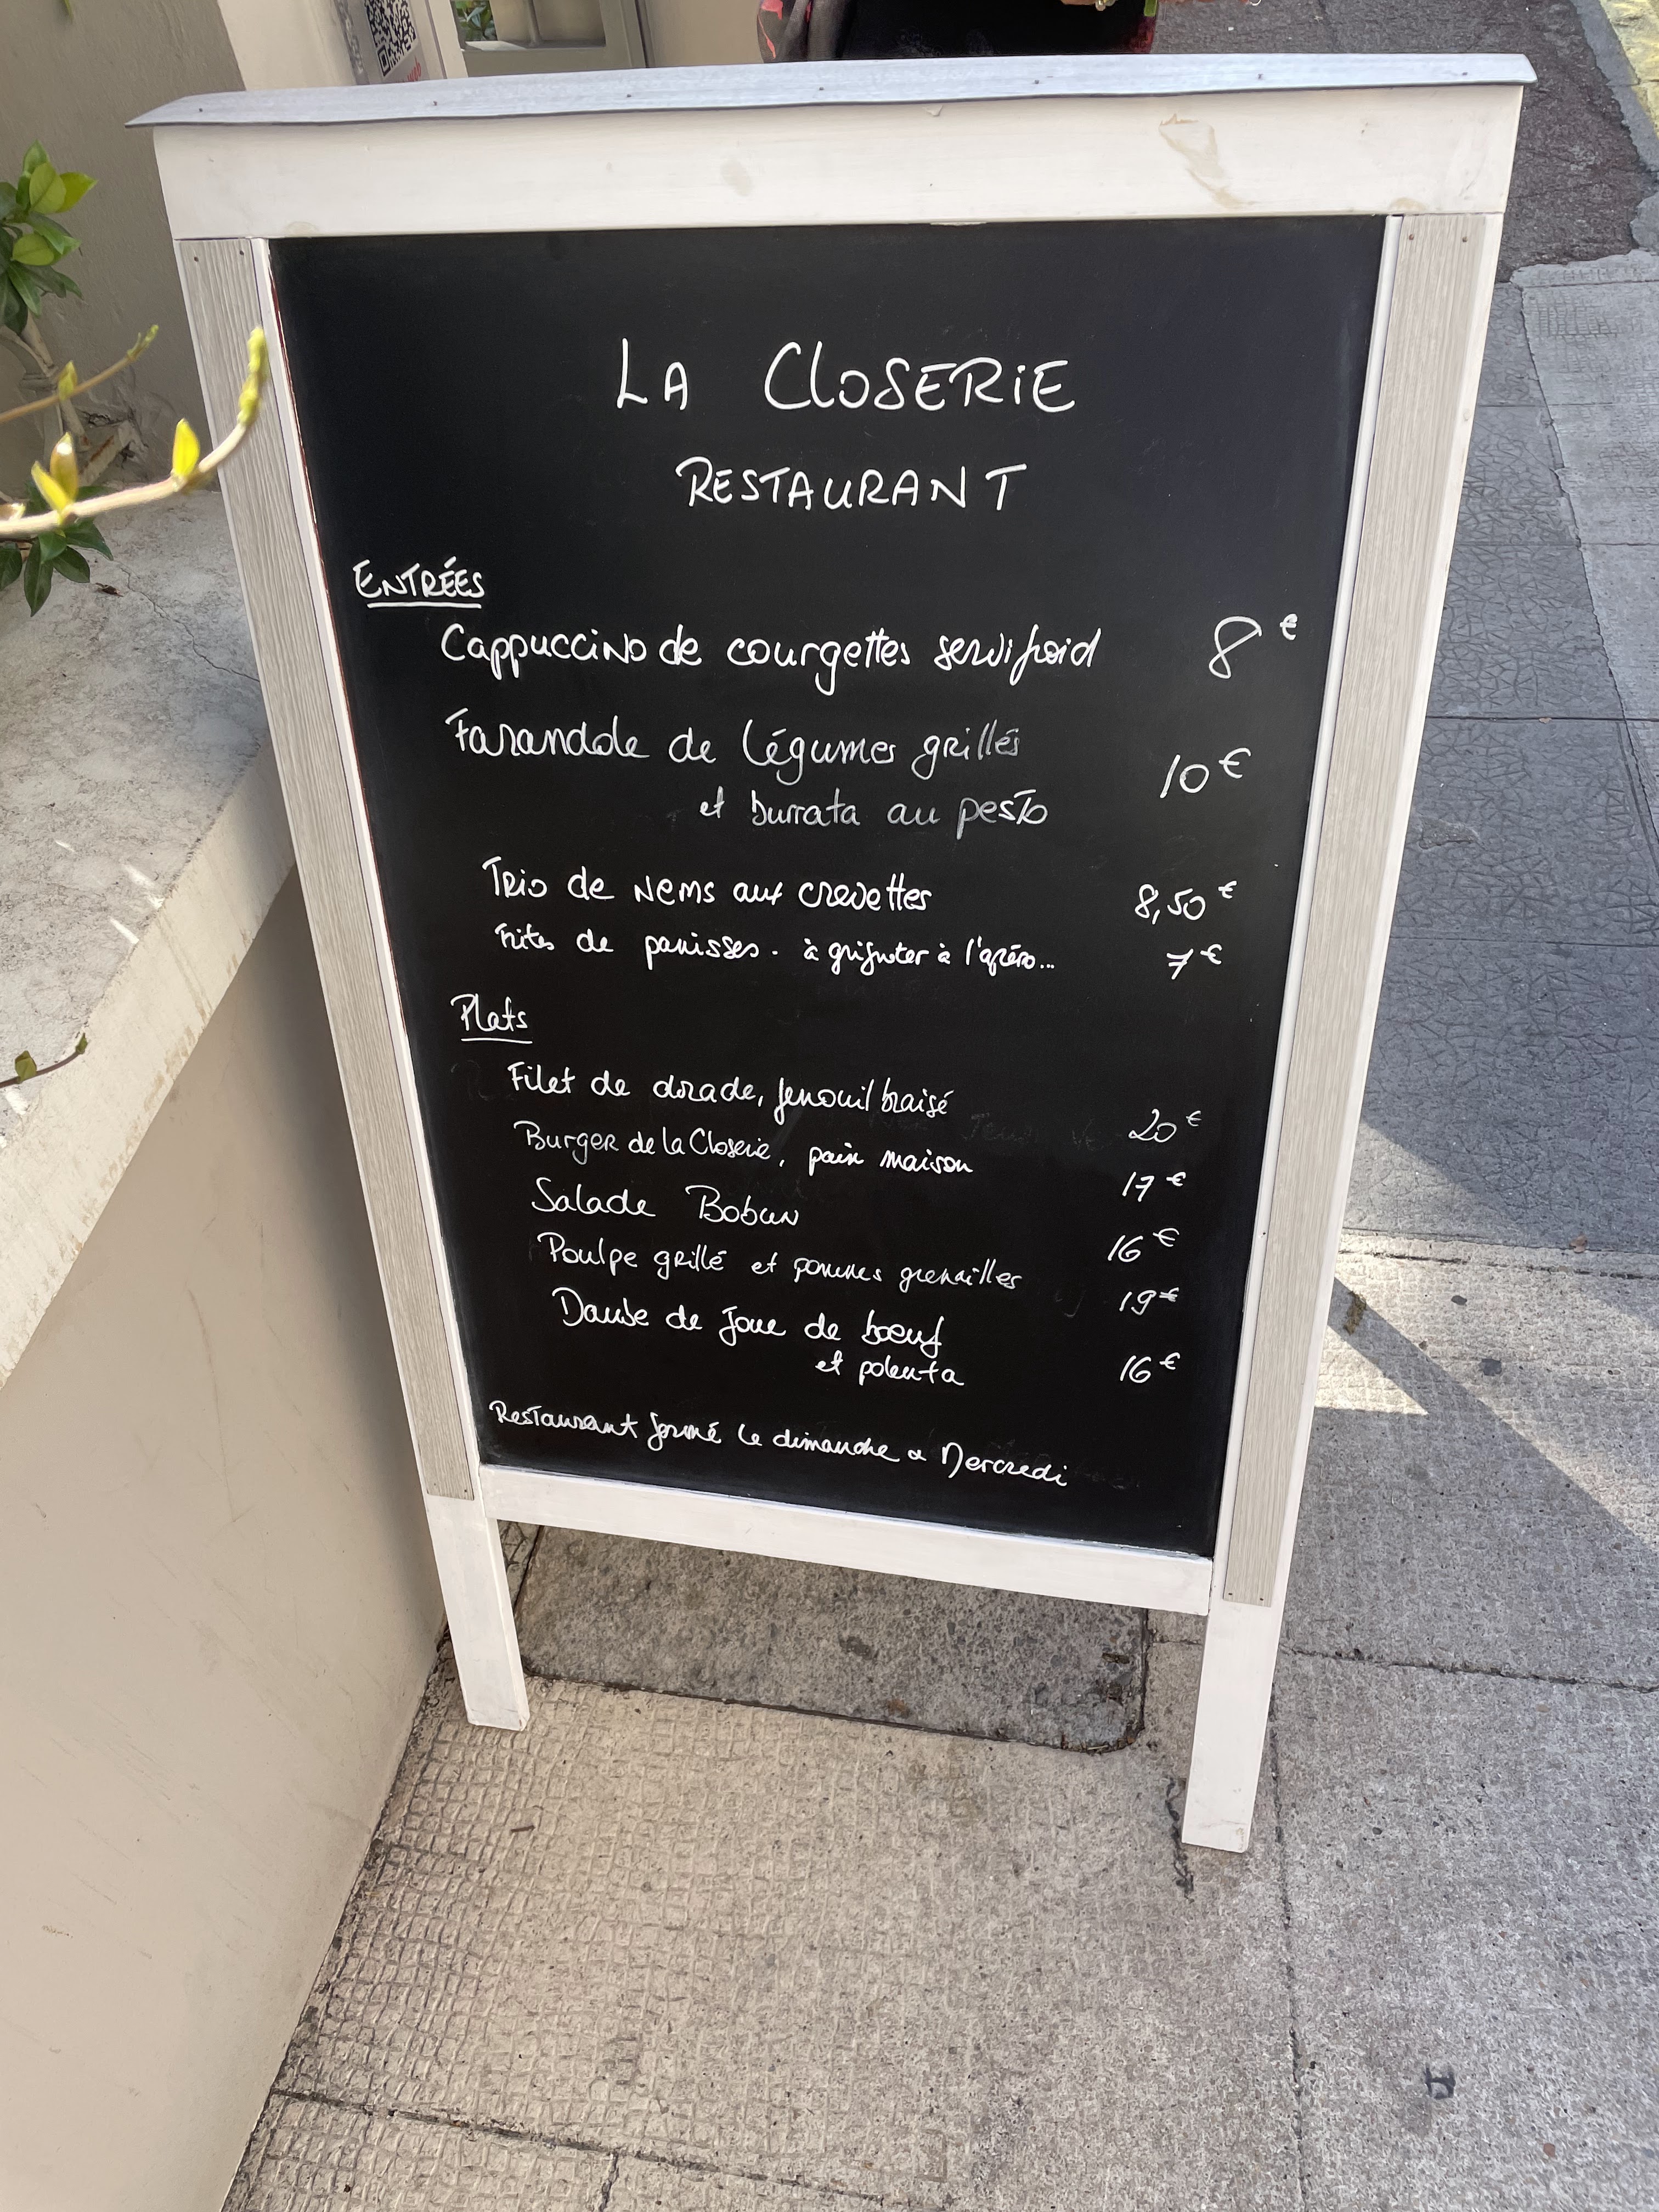 LA CLOSERIE
RESTAURANT
ENTRÉES
Cappuccino de courgettes servi froid 8€
Farandole de légumes grillés
et burrata au pesto 10€
Trio de Nems aux crevettes 8,50€
Frites de panisses - à grignoter à l'apéro... 7€
Plats
Filet de dorade, fenouil braisé 20€
Burger de la Closerie, pain maison 17€
Salade Bobun 16€
Poulpe grillé et pommes grenailles 19€
Daube de joue de bœuf
et polenta 16€
Restaurant fermé le dimanche & Mercredi